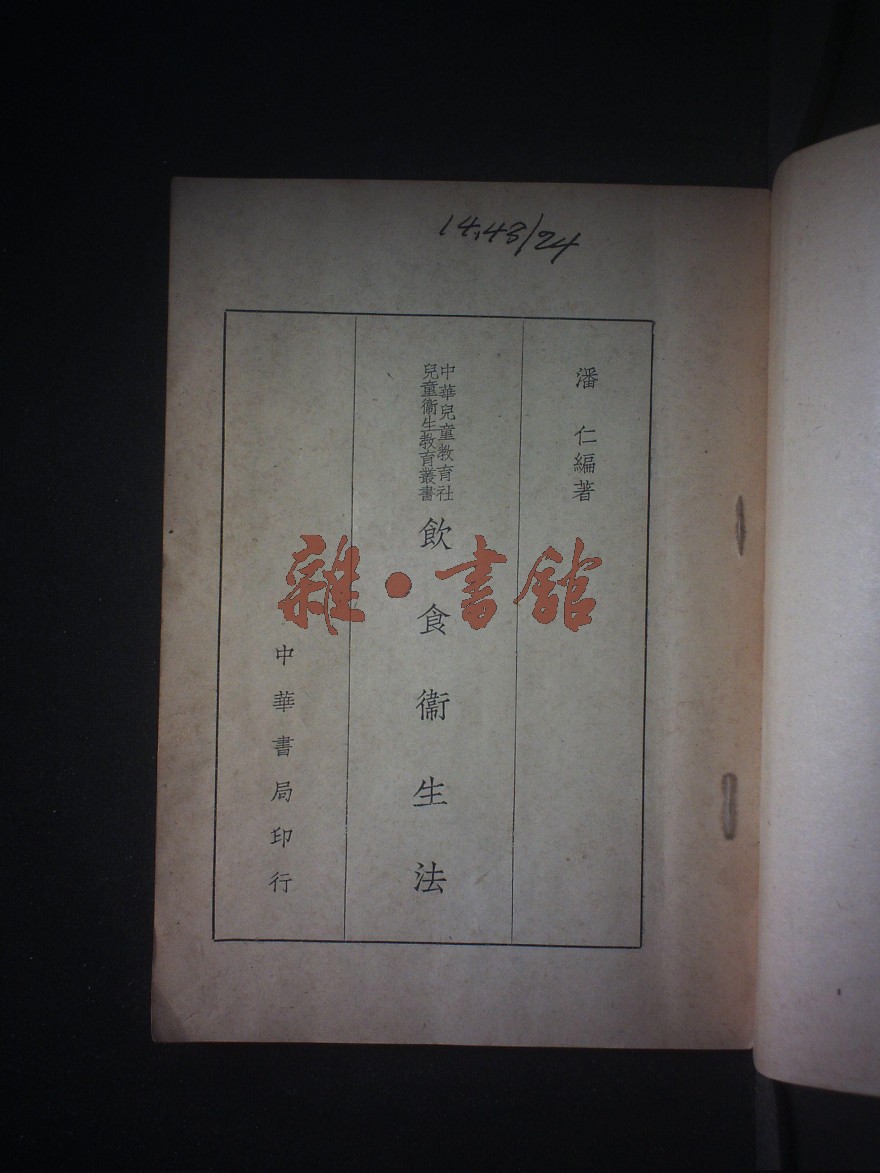 14,48/24
潘仁編著
中華兒童教育社
兒童衞生教育叢書
飲食衞生法
中華書局印行
雜·書館